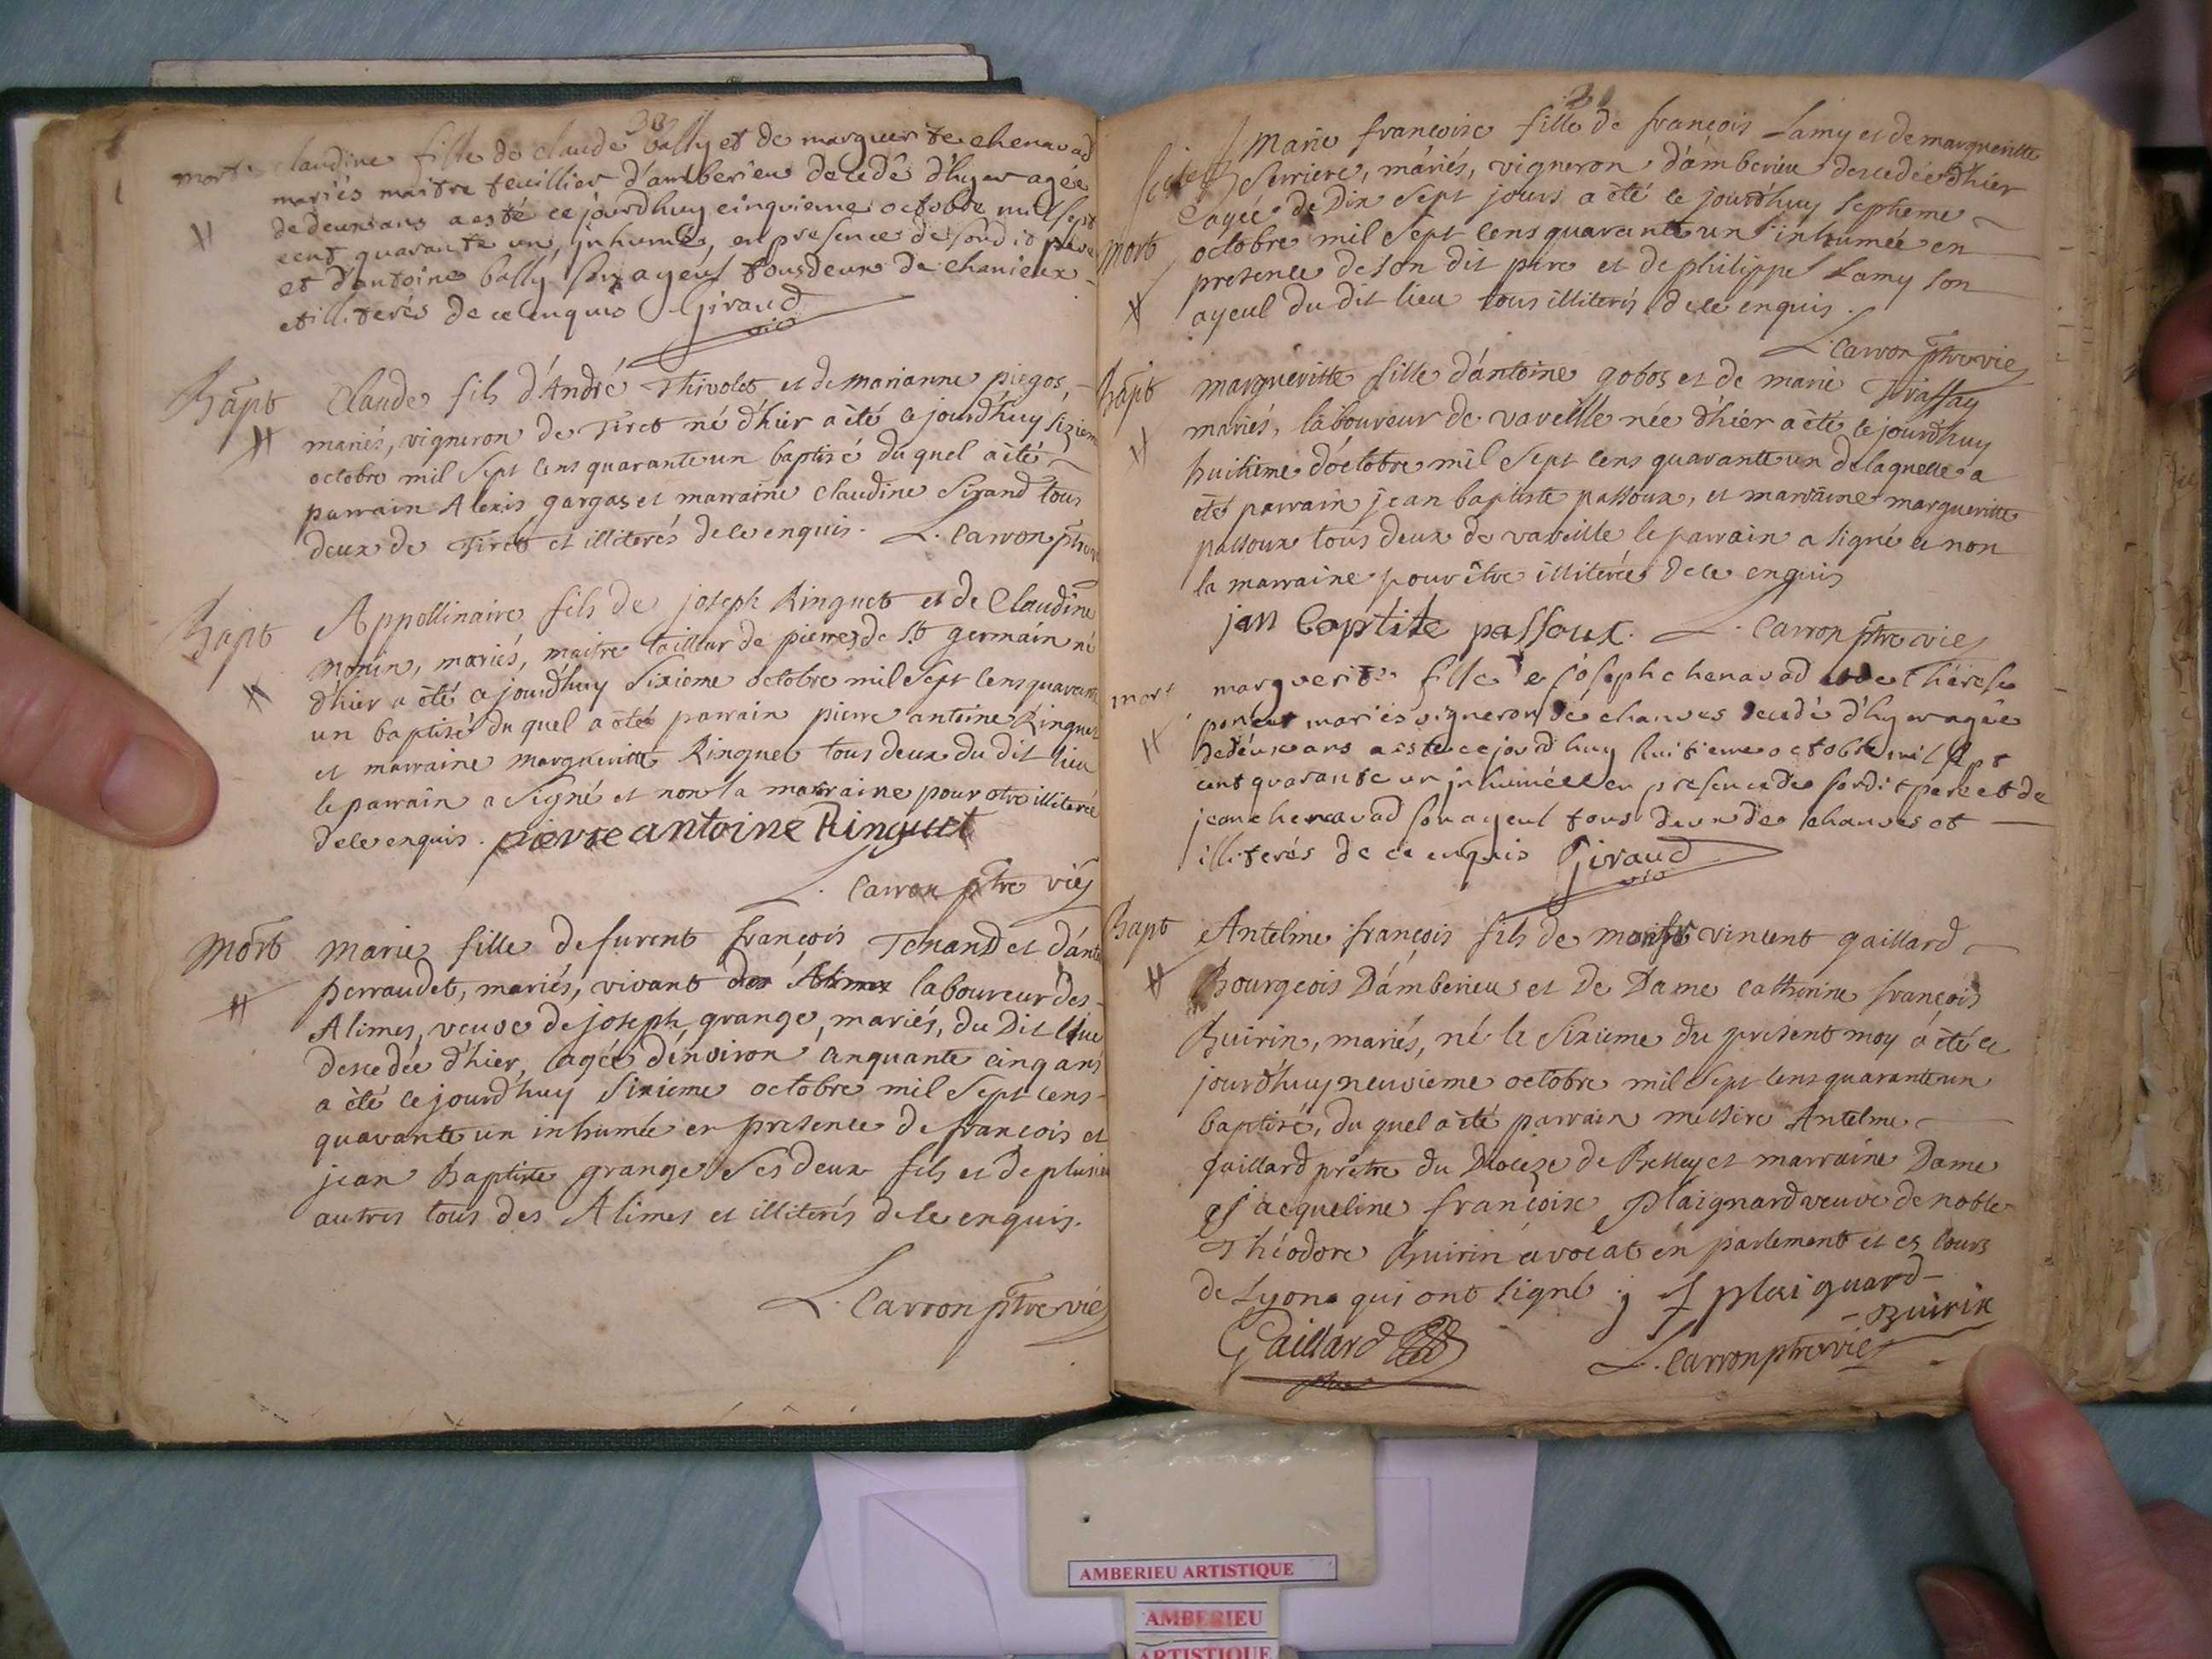 mort claudine fille de claude bally et de marguerite chenavad
mariés maitre teuillier d'amberieu decedê d'hyer agée
de deux ans a esté ce jourdhuy cinquieme octobre mil sept
cent quarante un, inhumée, en presence de sondit pere
et d'antoine bally son ayeul tous deux de chanieux
et illiterés de ce enquis Giraud
vic
Bapt Claude fils d'André Thivolet et de marianne piegos,
mariés, vigneron de Tiret né d'hier a été ce jourd'huy sizieme
octobre mil sept cens quarante un baptisé du quel a été
parrain Alexis gargas et marraine Claudine Sirand tous
deux de Tiret et illiterés de ce enquis. L. Carron ptre
Bapt Appollinaire fils de joseph Ringuet et de Claudine
monin, mariés, maitre tailleur de pierres de St germain né
d'hier a été ce jourd'huy sixieme octobre mil sept cens quarante
un baptisé du quel a été parrain pierre antoine Ringuet
et marraine margueritte Ringuet tous deux du dit lieu
le parrain a signé et non la marraine pour etre illiterée
de ce enquis. pierre antoine Ringuet
L. Carron ptre vic
Mort Marie fille de furent françois Tenand et d'ant
perraudet, mariés, vivant laboureur des
Alimes, veuve de joseph grange, mariés, du dit lieu
descedée d'hier, agée d'environ cinquante cinq ans
a été ce jourd'huy sixieme octobre mil sept cens
quarante un inhumée en presence de françois et
jean Baptiste grange ses deux fils et de plusieu
autres tous des Alimes et illiterés de ce enquis.
L. Carron ptre vic
Marie françoise fille de françois Lamy et de margueritte
Serriere, mariés, vigneron d'amberieu descedée d'hier
agée de Dix sept jours a été ce jourd'huy septieme
mort octobre mil sept cens quarante un inhumée en
presence de son dit pere et de philippe Lamy son
ayeul du dit lieu tous illiterés de ce enquis.
L. Carron ptre vic
Bapt margueritte fille d'antoine gobos et de marie
mariés, laboureur de vareille née d'hier a été ce jourd'huy
huitieme d'octobre mil sept cens quarante un de laquelle a
été parrain jean baptiste passoux, et marraine margueritte
passoux tous deux de vareille le parrain a signé et non
la marraine pour être illiterée de ce enquis
jan baptiste passoux. L. Carron ptre vic
mort marguerite fille de joseph chenavad et de Thérese
mariés vigneron de chanves decedé d'hyer agée
de deux ans a esté ce jourdhuy huitieme octobre mil sept
cent quarante un inhumée en presence de sondit pere et de
jean chenavad son ayeul tous deux de chanves et
illiterés de ce enquis Giraud
vic
Bapt Antelme françois fils de vincent gaillard
Bourgeois d'Amberieu et de Dame Catherine françois
Buirin, mariés, né le sixieme du present moy a été ce
jourd'huy neuvieme octobre mil sept cens quarante un
baptisé, du quel a été parrain messire Antelme
gaillard prêtre du Dioceze de Belley et marraine Dame
jacqueline françoise plaignard veuve de noble
Théodore Buirin avocat en parlement et es cours
de Lyon qui ont signé ; J plaiguard
Buirin
Gaillard L. Carron ptre vic
AMBERIEU ARTISTIQUE
AMBERIEU
ARTISTIQUE